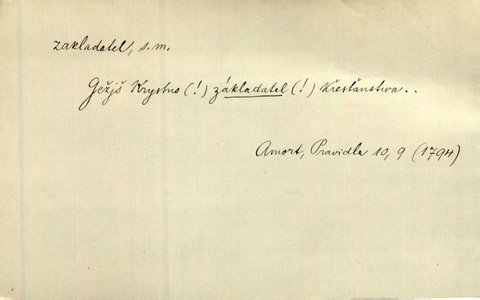 zakladatel, s. m.
Gežjš Krystus (!) základatel (!) Křesťanstwa..
Amort, Pravidla 10, 9 (1794)